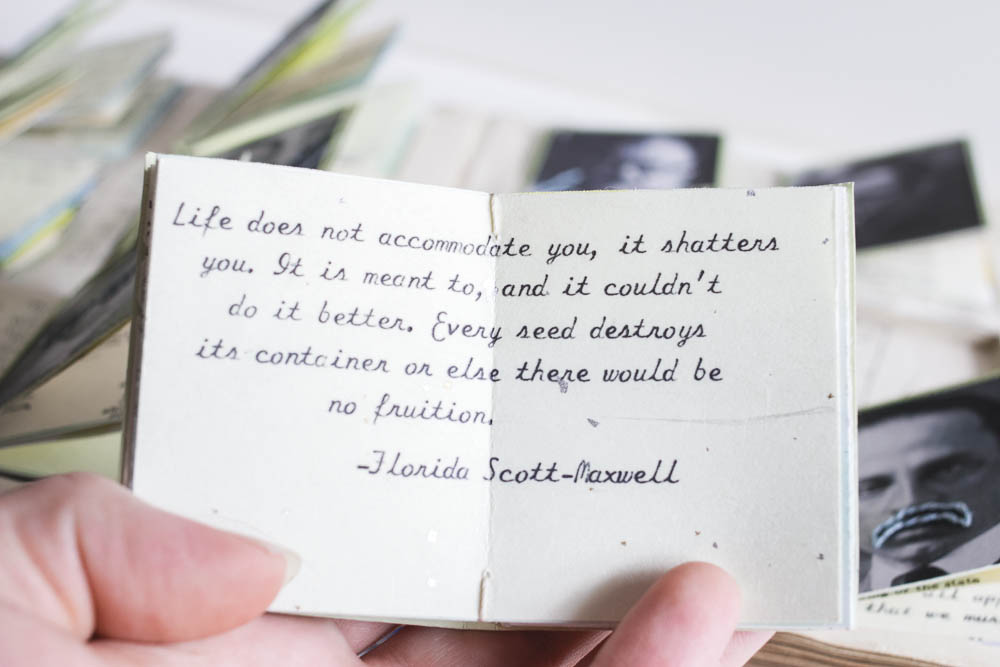 Life does not accommodate you, it shatters
you. It is meant to, and it couldn't
do it better. Every seed destroys
its container or else there would be
no fruition.
-Florida Scott-Maxwell
of the state
that we